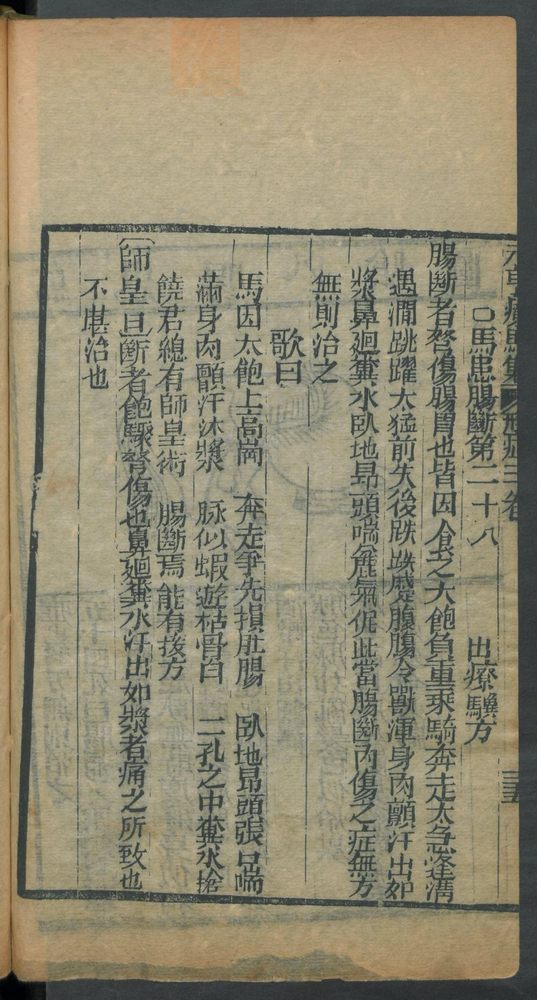 元亨療馬集 三卷 三五
○馬患腸斷第二十八 出療驥方
腸斷者脊傷腸胃也皆因食之太飽負重乘騎奔走太急逢溝
遇澗跳躍太猛前失後跌 腹腸令獸渾身肉顫汗出如
漿鼻廻糞水臥地昻頭喘麄氣促此當腸斷内傷之症無方
無則治之
歌曰
馬因太飽上高崗 奔走爭先損肚腸 臥地昻頭張口喘
滿身肉顫汗沐漿 脉似蝦遊枯骨白 二孔之中糞水搶
饒君總有師皇術 腸斷焉能有接方
師皇曰斷者飽驟脊傷也鼻廻糞水汗出如漿者痛之所致也
不堪治也